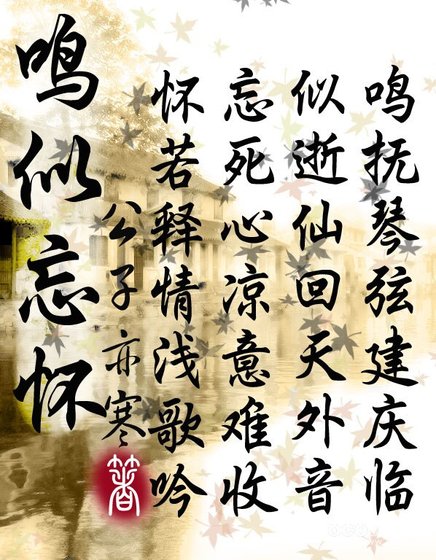 鸣似忘怀
鸣抚琴弦建庆临
似逝仙回天外音
忘死心凉意难收
怀若释情浅歌吟
公子亦寒
著